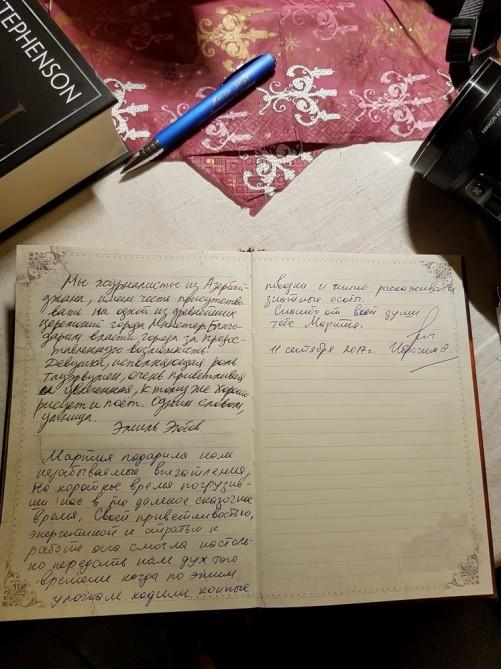 STEPHENSON
Мы журналисты из Азербай-
джана, имели честь присутство-
вать на одной из древнейших
церемоний города Мюнстер. Благо-
дарим власти города за предос-
тавленную возможность.
Девушка, исполняющая роль
очень приветливая
и к тому же хорошо
рисует и поет. Одним словом,
умница.
Эмиль
Мартия подарила нам
незабываемые впечатления,
На короткое время погрузив-
ши нас в то далекое сказочное
время. Своей приветливостью,
энергетикой и страстью к
работе она смогла настоль-
ко передать нам дух того
времени когда по этим
улочкам ходили конные
и чинно расхаживали
знатные особы.
Спасибо от всей души
тебе Мартия.
11 сентября 2017г.